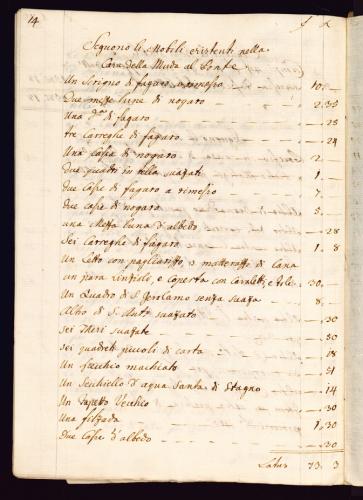 14
Seguono li Mobili esistenti nella
Casa della Muda al Ponte
Un Scrigno di fagaro a rimesso — 10:—
Due meze lune di nogaro — 2:
Una d.ª di fagaro — 25
tre Careghe di fagaro — 24
Una Casse di nogaro — 2:—
Due quadri in tella suazati — 1:—
Due Casse di fagaro a rimesso — 7:—
Due casse di nogaro — 5:—
una Meza luna d'albedo — 28
Sei Careghe di fagaro — 1:8
Un Letto con pagliarizzo, e matterazzo di lana
un para linzioli, e coperta con Cavaletti, e tole — 30:—
Un Quadro di S. Gerolamo senza suaza — 8:—
Altro di S. Ant.º suazato — 30
Sei Meri suazate — 30
Sei quadreti picoli di carta — 18
Un machiato — 51
Un Sechiello d'aqua santa di Stagno — 14
Un Tapetto Vecchio — 30
Una filzada — 1:30
Due Casse d'albedo — 30
Latus 73:3